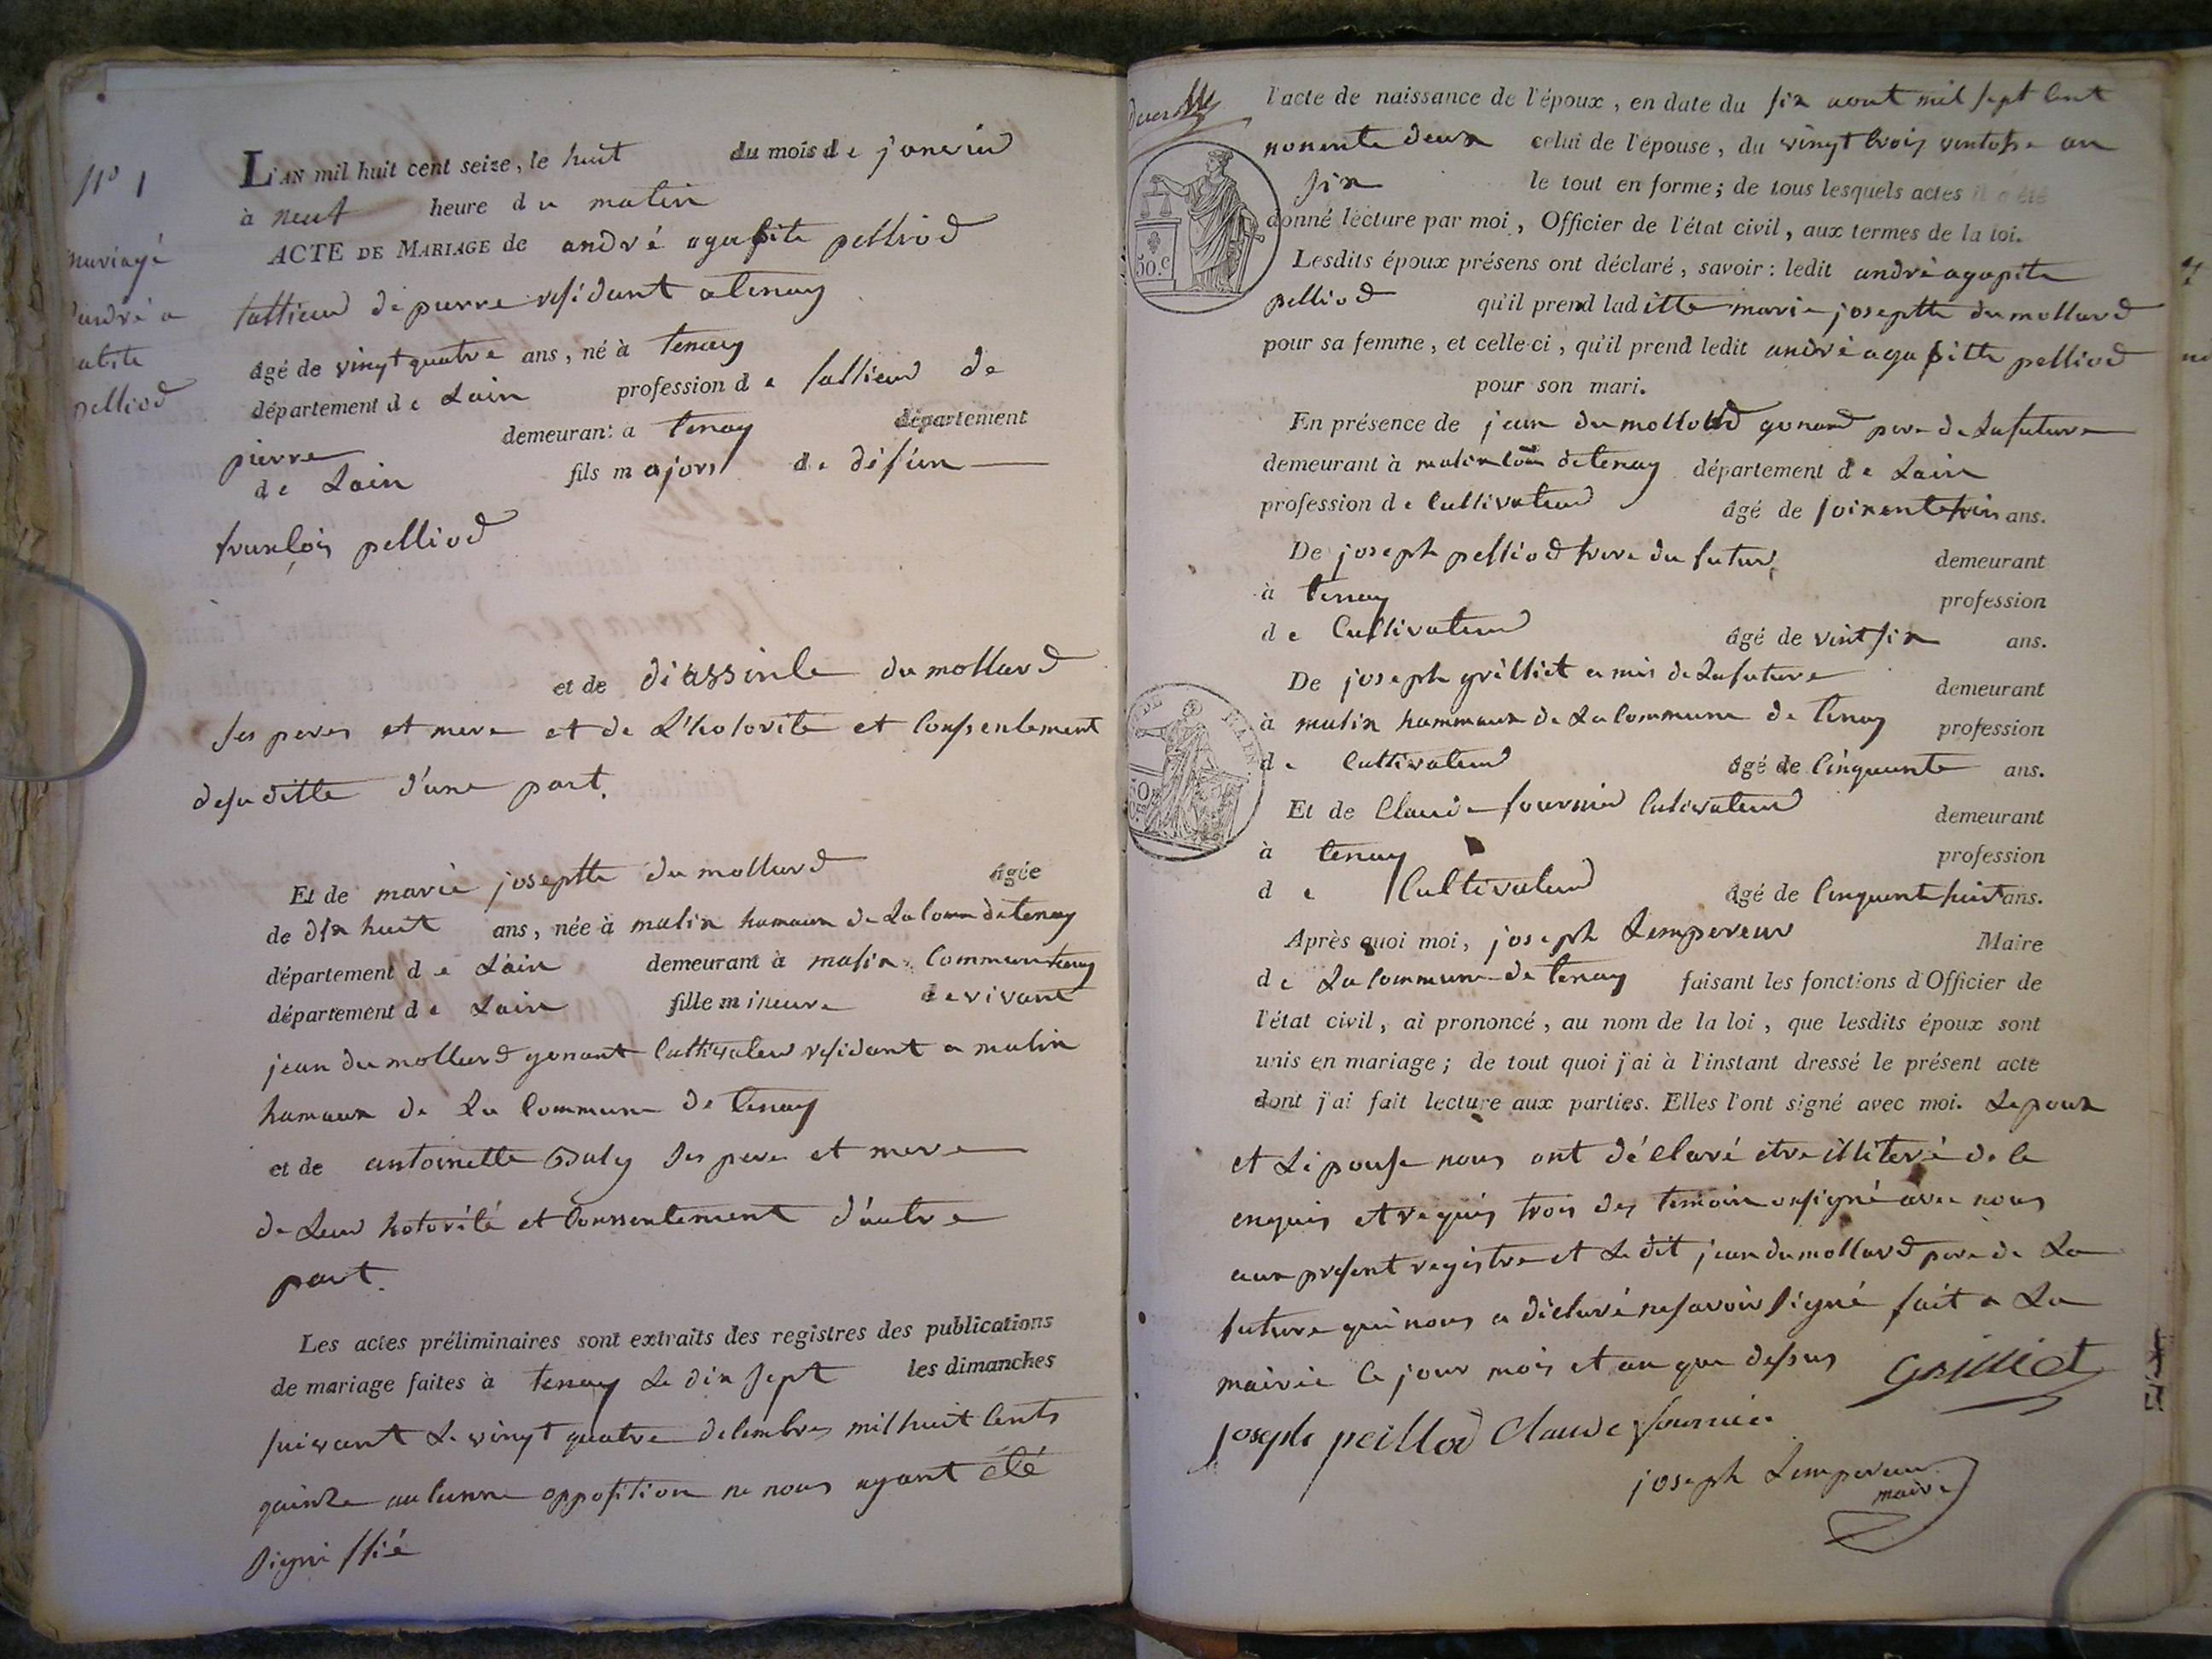 N° 1
mariage
d'andré a
pelliod
L'AN mil huit cent seize, le huit du mois de janvier
à neuf heure du matin
ACTE DE MARIAGE de andré agapite pelliod
tallieur de pierre residant a tenay
âgé de vingt quatre ans, né à tenay
département de Lain profession de tallieur de
pierre demeurant a tenay département
de Lain fils majors de défun
francois pelliod
et de du mollard
ses peres et mere et de L'hotorite et Consentement
desaditte d'une part.
Et de marie josephte du mollard âgée
de dix huit ans, née à malix hamaux de La Comm de tenay
département de Lain demeurant à malix Commun tenay
département de Lain fille mineure de vivant
jean du mollard gonant Cultivateur residant a malix
hamaux de La Commune de tenay
et de antoinette Baly ses pere et mere
de Leur hotorité et Conssentement d'autre
part.
Les actes préliminaires sont extraits des registres des publications
de mariage faites à tenay Le dix sept les dimanches
suivant Le vingt quatre decembres mil huit Cents
quinze aucunne opposition ne nous ayant été
signiffié
l'acte de naissance de l'époux, en date du six aout mil sept Cent
nonente deux celui de l'épouse, du vingt trois ventosse an
six le tout en forme; de tous lesquels actes il a été
donné lecture par moi, Officier de l'état civil, aux termes de la loi.
Lesdits époux présens ont déclaré, savoir: ledit andré agapite
pelliod qu'il prend laditte marie josephte du mollard
pour sa femme, et celle-ci, qu'il prend ledit andré agapitte pelliod
pour son mari.
En présence de jean du mollard gonand pere de La future
demeurant à malix Com de tenay département de Lain
profession de Cultivateur âgé de ans.
De joseph pelliod frere du futur demeurant
à tenay profession
de Cultivateur âgé de vint six ans.
De joseph grilliet amis de La future demeurant
à malix hammaux de La Commune de tenay profession
de Cultivateur âgé de Cinquante ans.
Et de Claude fournier Cultivateur demeurant
à tenay profession
de Cultivateur âgé de Cinquente huit ans.
Après quoi moi, joseph Lempereur Maire
de La Commune de tenay faisant les fonctions d'Officier de
l'état civil, ai prononcé, au nom de la loi, que lesdits époux sont
unis en mariage; de tout quoi j'ai à l'instant dressé le présent acte
dont j'ai fait lecture aux parties. Elles l'ont signé avec moi. Lepoux
et Lepouse nous ont déclaré etre illiteré de ce
enquis et requis trois des temoin onsigné avec nous
aux present registre et Le dit jean du mollard pere de La
future qui nous a déclaré ne savoir signé fait a La
mairie Ce jour mois et an que dessus Grilliet
joseph peillod Claude fournier
joseph Lempereur
maire
50.c